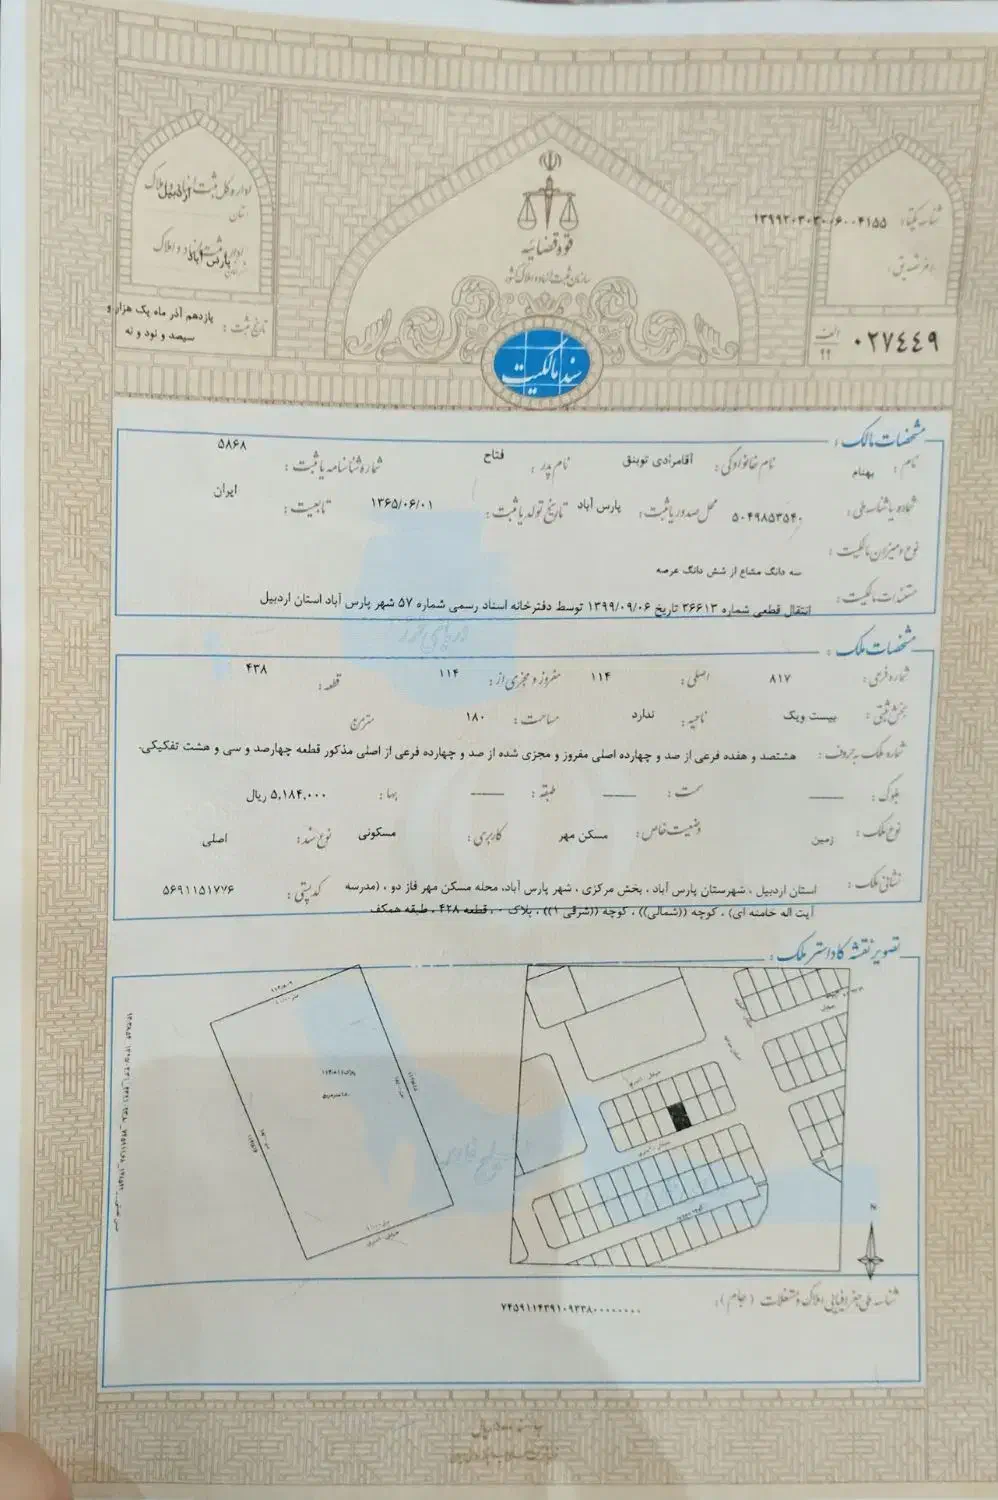 قوه قضائیه
سازمان ثبت اسناد و املاک کشور
اداره کل ثبت اسناد و املاک
استان اردبیل
اداره ثبت اسناد و املاک
پارس آباد
تاریخ ثبت : یازدهم آذر ماه یک هزار و
سیصد و نود و نه
شناسه یکتا: ۱۳۹۹۲۰۳۰۳۰۰۶۰۰۴۱۵۵
الف
۹۹
۰۲۷۴۴۹
سند مالکیت
مشخصات مالک :
نام : بهنام نام خانوادگی : آقامرادی تویتق نام پدر : فتاح شماره شناسنامه یا ثبت : ۵۸۶۸
شماره یا شناسه ملی : ۵۰۴۹۸۵۳۵۴۰ محل صدور یا ثبت : پارس آباد تاریخ تولد یا ثبت : ۱۳۶۵/۰۶/۰۱ تابعیت : ایران
نوع و میزان مالکیت :
سه دانگ مشاع از شش دانگ عرصه
مستندات مالکیت :
انتقال قطعی شماره ۳۶۶۱۳ تاریخ ۱۳۹۹/۰۹/۰۶ توسط دفترخانه اسناد رسمی شماره ۵۷ شهر پارس آباد استان اردبیل
مشخصات ملک :
شماره فرعی : ۸۱۷ اصلی : ۱۱۴ مفروز و مجزی از : ۱۱۴ قطعه : ۴۳۸
بخش ثبتی : بیست ویک ناحیه : ندارد مساحت : ۱۸۰ مترمربع
شماره ملک به حروف : هشتصد و هفده فرعی از صد و چهارده اصلی مفروز و مجزی شده از صد و چهارده فرعی از اصلی مذکور قطعه چهارصد و سی و هشت تفکیکی.
بلوک : ——— سمت : ——— طبقه : ——— بها : ۵,۱۸۴,۰۰۰ ریال
نوع ملک : زمین وضعیت خاص : مسکن مهر کاربری : مسکونی نوع سند : اصلی
نشانی ملک : استان اردبیل ، شهرستان پارس آباد ، بخش مرکزی ، شهر پارس آباد، محله مسکن مهر فاز دو ، (مدرسه کد پستی : ۵۶۹۱۱۵۱۷۷۶
آیت اله خامنه ای) ، کوچه ((شمالی)) ، کوچه ((شرقی ۱)) ، پلاک ۰ ، قطعه ۴۲۸ ، طبقه همکف
تصویر نقشه کاداستر ملک :
N
شناسه ملی جغرافیایی املاک و مستغلات (جام) : ۷۴۵۹۱۱۴۳۹۱۰۹۳۳۸۰۰۰۰۰۰۰۰